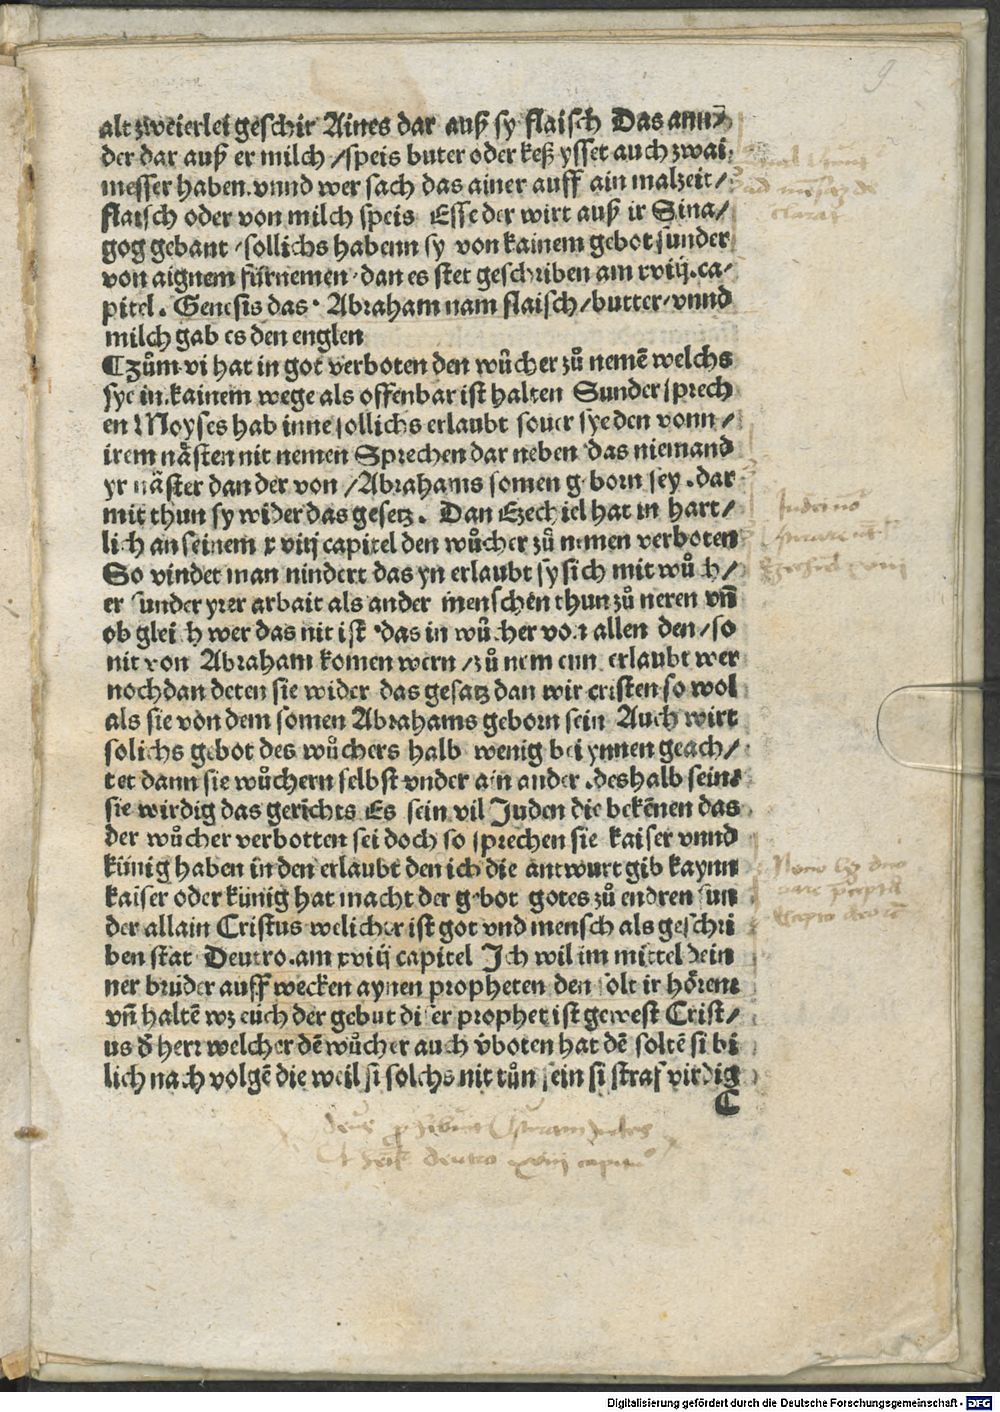 9
alt zweierlei geschir Aines dar auß sy flaisch Das ann⸗
der dar auß er milch / speis buter oder keß ysset auch zwai
messer haben. vnnd wer sach das ainer auff ain malzeit /
flaisch oder von milch speis Esse der wirt auß ir Sina /
gog gebant / sollichs habenn sy von kainem gebot sunder
von aignem fürnemen · dan es stet geschriben am xviij. ca⸗
pitel. Genesis das · Abraham nam flaisch / butter / vnnd
milch gab es den englen
¶Zům vi hat in got verboten den wůcher zů nemē welchs
sye in kainem wege als offenbar ist halten Sunder sprech
en Moyses hab inne sollichs erlaubt souer sye den vonn /
irem nåsten nit nemen Sprechen dar neben das niemand
yr nåster dan der von / Abrahams somen geborn sey . dar
mit thun sy wider das gesetz . Dan Ezechiel hat in hart /
lich an seinem xviij capitel den wůcher zů nemen verboten
So vindet man nindert das yn erlaubt sy sich mit wůch /
er sunder yrer arbait als ander menschen thun zů neren vn̄
ob gleich wer das nit ist · das in wůcher von allen den / so
nit von Abraham komen wern / zů nemenn erlaubt wer
nochdan deten sie wider das gesatz dan wir cristen so wol
als sie von dem somen Abrahams geborn sein Auch wirt
solichs gebot des wůchers halb wenig bei ynnen geach /
tet dann sie wůchern selbst vnder ain ander . deshalb seint
sie wirdig das gerichts Es sein vil Juden die bekēnen das
der wůcher verbotten sei doch so sprechen sie kaiser vnnd
künig haben in den erlaubt den ich die antwurt gib kaynn
kaiser oder künig hat macht der gebot gotes zů endren sun
der allain Cristus welicher ist got vnd mensch als geschri
ben stat Deutro. am xviij capitel Ich wil im mittel dein
ner brüder auff wecken aynen propheten den solt ir hörenn
vn̄ haltē wz euch der gebut diser prophet ist gewest Crist /
us d̄ herr welcher dē wůcher auch v̄boten hat dē soltē si bi
lich nach volgē die weil si solchs nit tůn sein si straf wirdig
C
deutro xviij capitulo
Digitalisierung gefördert durch die Deutsche Forschungsgemeinschaft - DFG